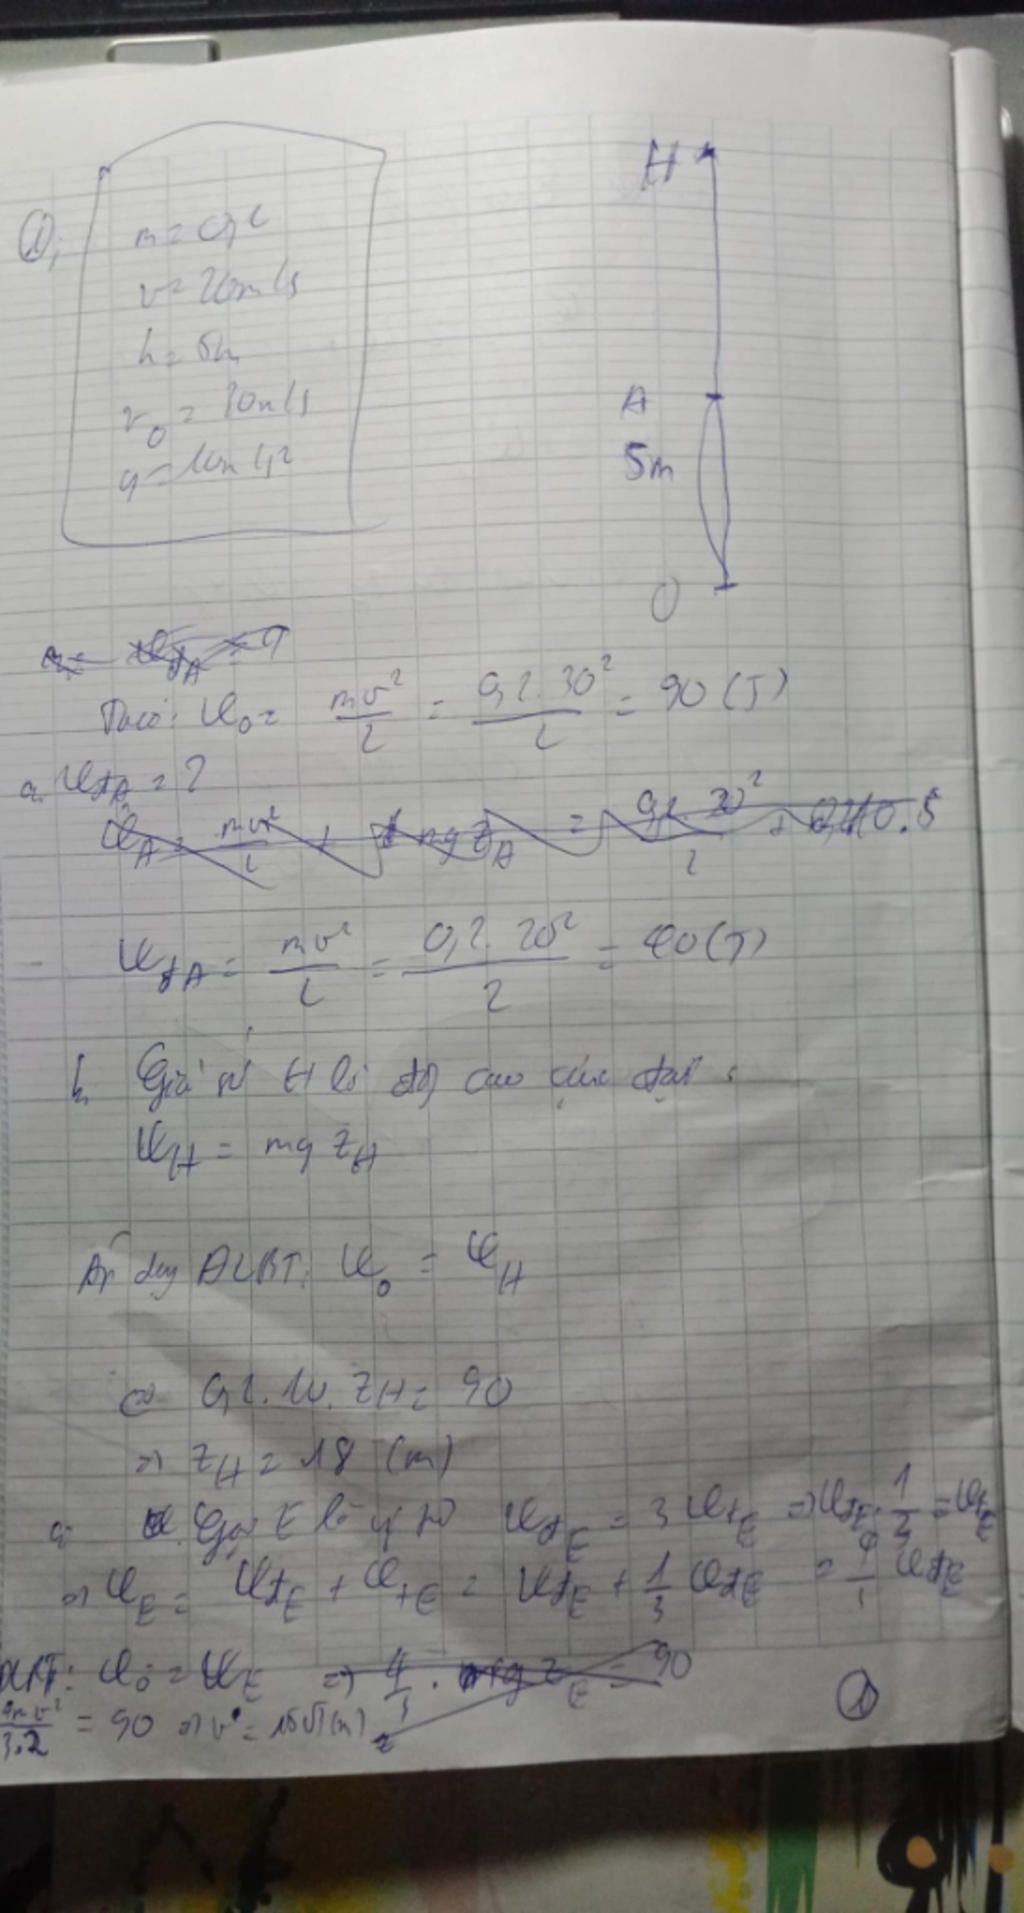 ①,
m = 0,2
v = 20m/s
h = 5m
v₀ = 30m/s
g = 10m/s²
H
A
5m
O
Ta có: W₀ = mv²/2 = 0,2.30²/2 = 90 (J)
a. WđA = ?
WA = mv²/2 + mg zA = 0,2.20²/2 + 0,2.10.5
WđA = mv²/2 = 0,2.20²/2 = 40 (J)
b, Giả sử H là độ cao cực đại:
WH = mg zH
Áp dụng ĐLBT: W₀ = WH
⇔ 0,2.10.zH = 90
⇒ zH = 18 (m)
Gọi E là vị trí WđE = 3 WtE ⇒ WđE . 1/3 = WtE
⇒ WE = WđE + WtE = WđE + 1/3 WđE = WđE
ĐLBT: W₀ = WE ⇒ 4/3 . mg zE = 90
4mv²/3.2 = 90 ⇒ v = 15√3 (m)
①